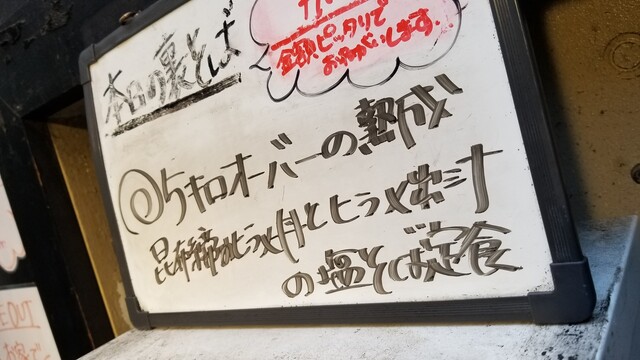 本日の裏そば
金額ピッタリで
お願いします。
◎5キロオーバーの熟成
昆布締めヒラメ丼とヒラメ出汁
の塩そば定食